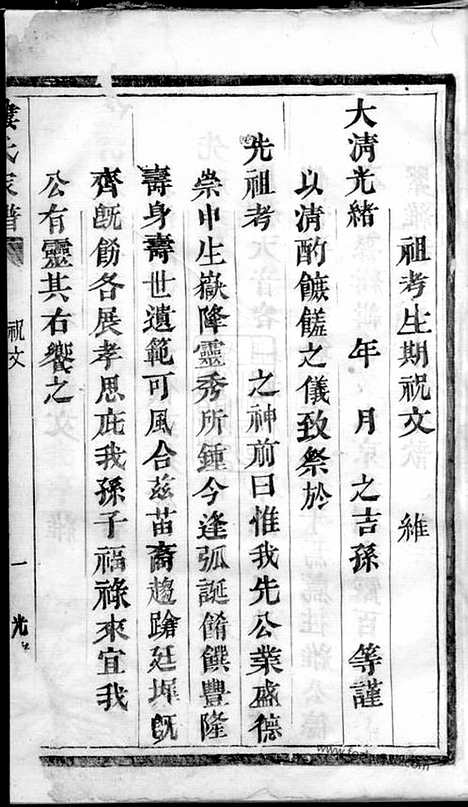 祖考生期祝文 維
大清光緒 年 月 之吉孫 等謹
以清酌餼饈之儀致祭於
先祖考 之神前曰惟我先公業盛德
崇申生嶽降靈秀所鍾今逢弧誕餚饌豐隆
壽身壽世遺範可風合茲苗裔趨蹌廷墀旣
齊旣飭各展孝思庇我孫子福祿來宜我
公有靈其右饗之
氏家譜
祝文
一
光